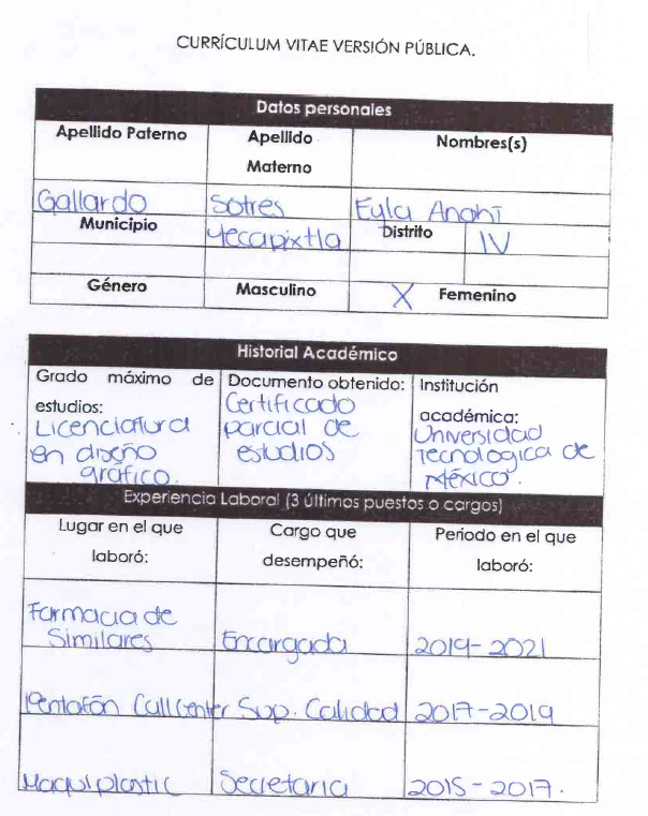 CURRÍCULUM VITAE VERSIÓN PÚBLICA.
Datos personales
Apellido Paterno
Apellido Materno
Nombres(s)
Gallardo
Sotres
Eyla Anahí
Municipio
Yecapixtla
Distrito
IV
Género
Masculino
X Femenino
Historial Académico
Grado máximo de
estudios:
Licenciatura
en diseño
gráfico.
Documento obtenido:
Certificado
parcial de
estudios
Institución
académica:
Universidad
Tecnologica de
México.
Experiencia Laboral (3 últimos puestos o cargos)
Lugar en el que
laboró:
Cargo que
desempeñó:
Periodo en el que
laboró:
Farmacia de
Similares
Encargada
2019-2021
Pentafón CallCenter
Sup. Calidad
2017-2019
Maquiplastic
Secretaria
2015-2017.